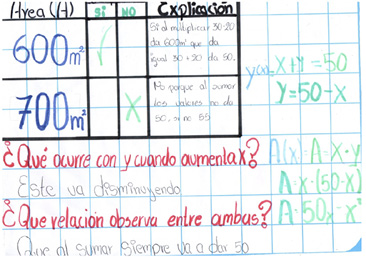 Area (A) Si NO Explicación
600m² ✓ Si al multiplicar 30·20 da 600m² que da igual 30+20 da 50.
y(x)= x+y=50
y=50-x
700m² X No porque al sumar los valores no da 50, si no 55
¿Qué ocurre con y cuando aumenta x? A(x)=A=x·y
Este va disminuyendo A=x·(50-x)
¿Que relación observa entre ambas? A=50x-x²
Que al sumar siempre va a dar 50